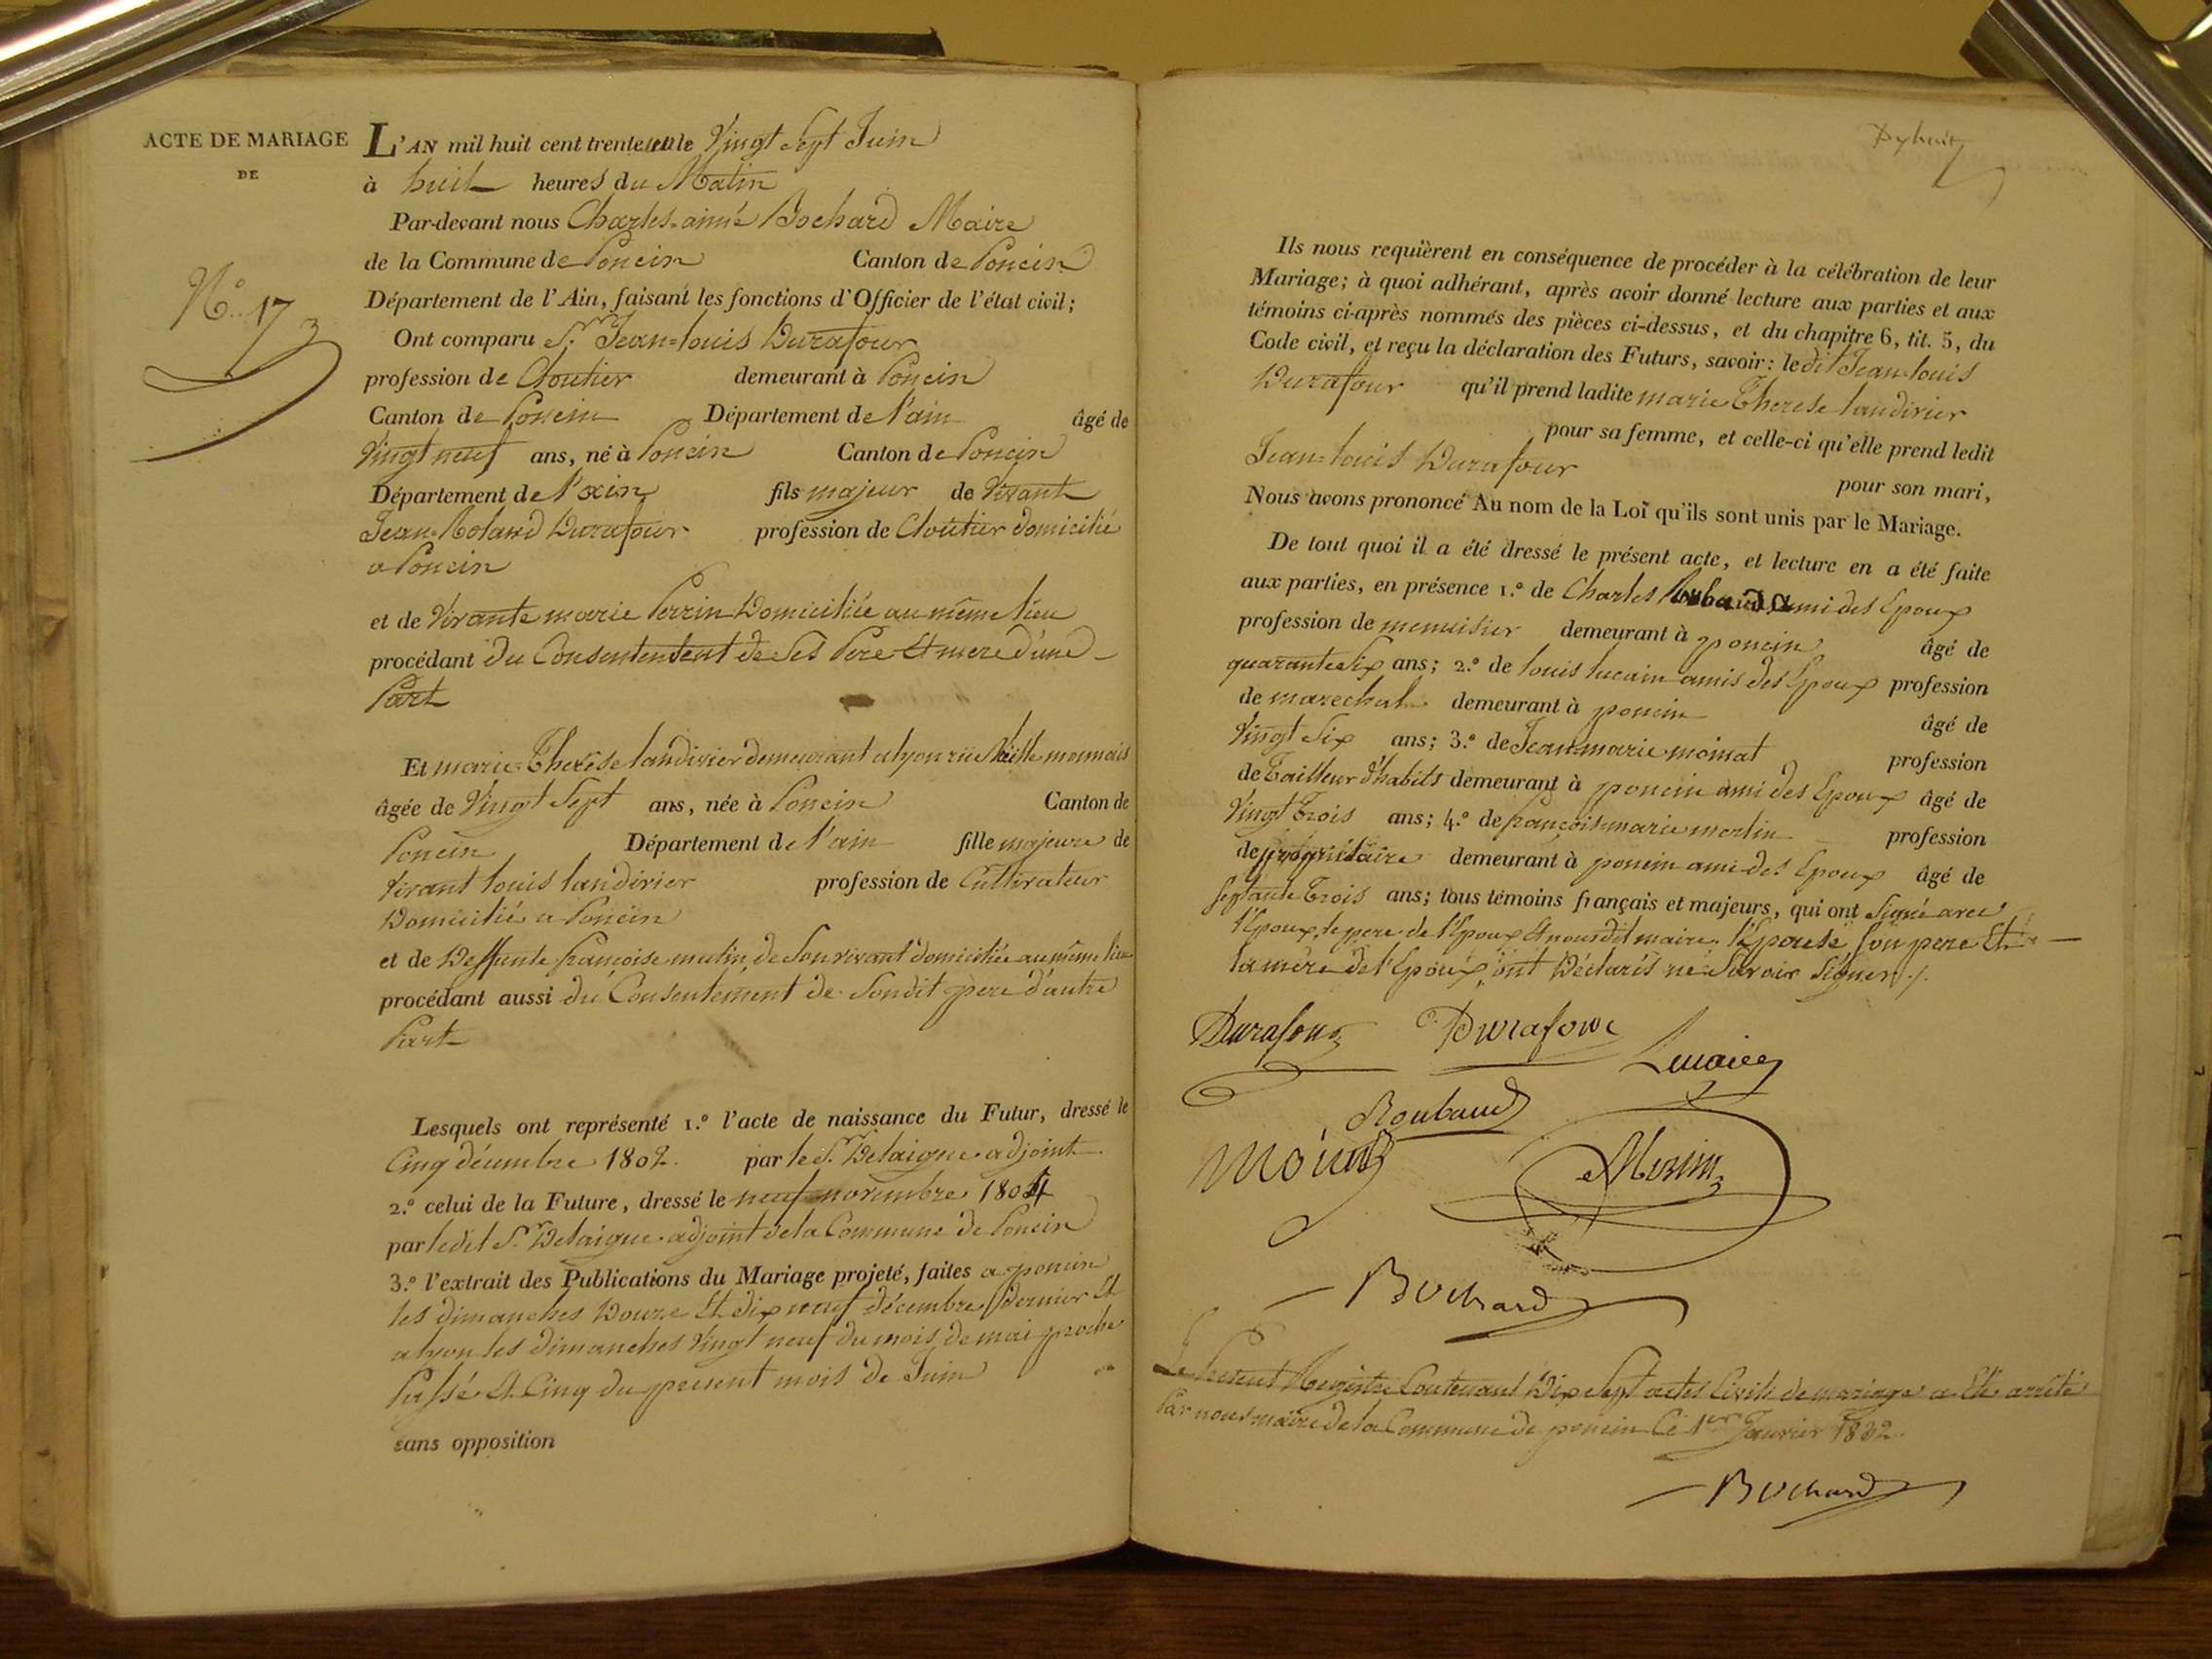 ACTE DE MARIAGE
DE
N.° 17
L'AN mil huit cent trente un le Vingt Sept Juin
à huit heures du Matin
Par-devant nous Charles-aimé Bochard Maire
de la Commune de Poncin Canton de Poncin
Département de l'Ain, faisant les fonctions d'Officier de l'état civil;
Ont comparu Sr. Jean-louis Durafour
profession de Cloutier demeurant à Poncin
Canton de Poncin Département de l'ain âgé de
Vingt neuf ans, né à Poncin Canton de Poncin
Département de l'ain fils majeur de Vivant
Jean-Roland Durafour profession de Cloutier domicilié
a Poncin
et de Vivante marie Perrin Domiciliée au même lieu
procédant du Consentement de Ses Pere Et mere d'une
Part
Et marie-Therèse landirier demeurant a lyon rue monnais
âgée de Vingt Sept ans, née à Poncin Canton de
Poncin Département de l'ain fille majeure de
Vivant louis landirier profession de Cultivateur
Domicilié a Poncin
et de Deffunte francoise matin de Son vivant domiciliée au même lieu
procédant aussi du Consentement de Sondit père d'autre
Part
Lesquels ont représenté 1.° l'acte de naissance du Futur, dressé le
Cinq décembre 1802. par le Sr. Delaigue adjoint
2.° celui de la Future, dressé le neuf novembre 1804
par ledit Sr. Delaigue adjoint de la Commune de Poncin
3.° l'extrait des Publications du Mariage projeté, faites a poncin
les dimanches Douze Et dix neuf décembre dernier Et
a lyon les dimanches Vingt neuf du mois de mai proche
Passé Et Cinq du present mois de Juin
sans opposition
Dyhuit
Ils nous requièrent en conséquence de procéder à la célébration de leur
Mariage; à quoi adhérant, après avoir donné lecture aux parties et aux
témoins ci-après nommés des pièces ci-dessus, et du chapitre 6, tit. 5, du
Code civil, et reçu la déclaration des Futurs, savoir: le dit Jean-louis
Durafour qu'il prend ladite marie Therese landirier
pour sa femme, et celle-ci qu'elle prend ledit
Jean-louis Durafour pour son mari,
Nous avons prononcé Au nom de la Loi qu'ils sont unis par le Mariage.
De tout quoi il a été dressé le présent acte, et lecture en a été faite
aux parties, en présence 1.° de Charles Roubaud ami des Epoux
profession de menuisier demeurant à poncin âgé de
quarante Six ans; 2.° de louis lucain amis des Epoux profession
de marechal demeurant à poncin âgé de
Vingt Six ans; 3.° de Jean-marie moinat profession
de Tailleur d'habits demeurant à poncin ami des Epoux âgé de
Vingt Trois ans; 4.° de françois marie merlin profession
de propriétaire demeurant à poncin ami des Epoux âgé de
Septante Trois ans; tous témoins français et majeurs, qui ont Signé avec
l'Epoux, le pere de l'Epoux Et nousdit maire. l'Epouse Son pere Et
la mère de l'Epoux, ont Déclarés ne Savoir Signer./.
Durafour Durafour
Roubaud
Bochard
Le Present Registre Contenant Dix Sept actes Civils de mariage a Eté arrêté
Par nous maire de la Commune de poncin Ce 1er Janvier 1832
Bochard